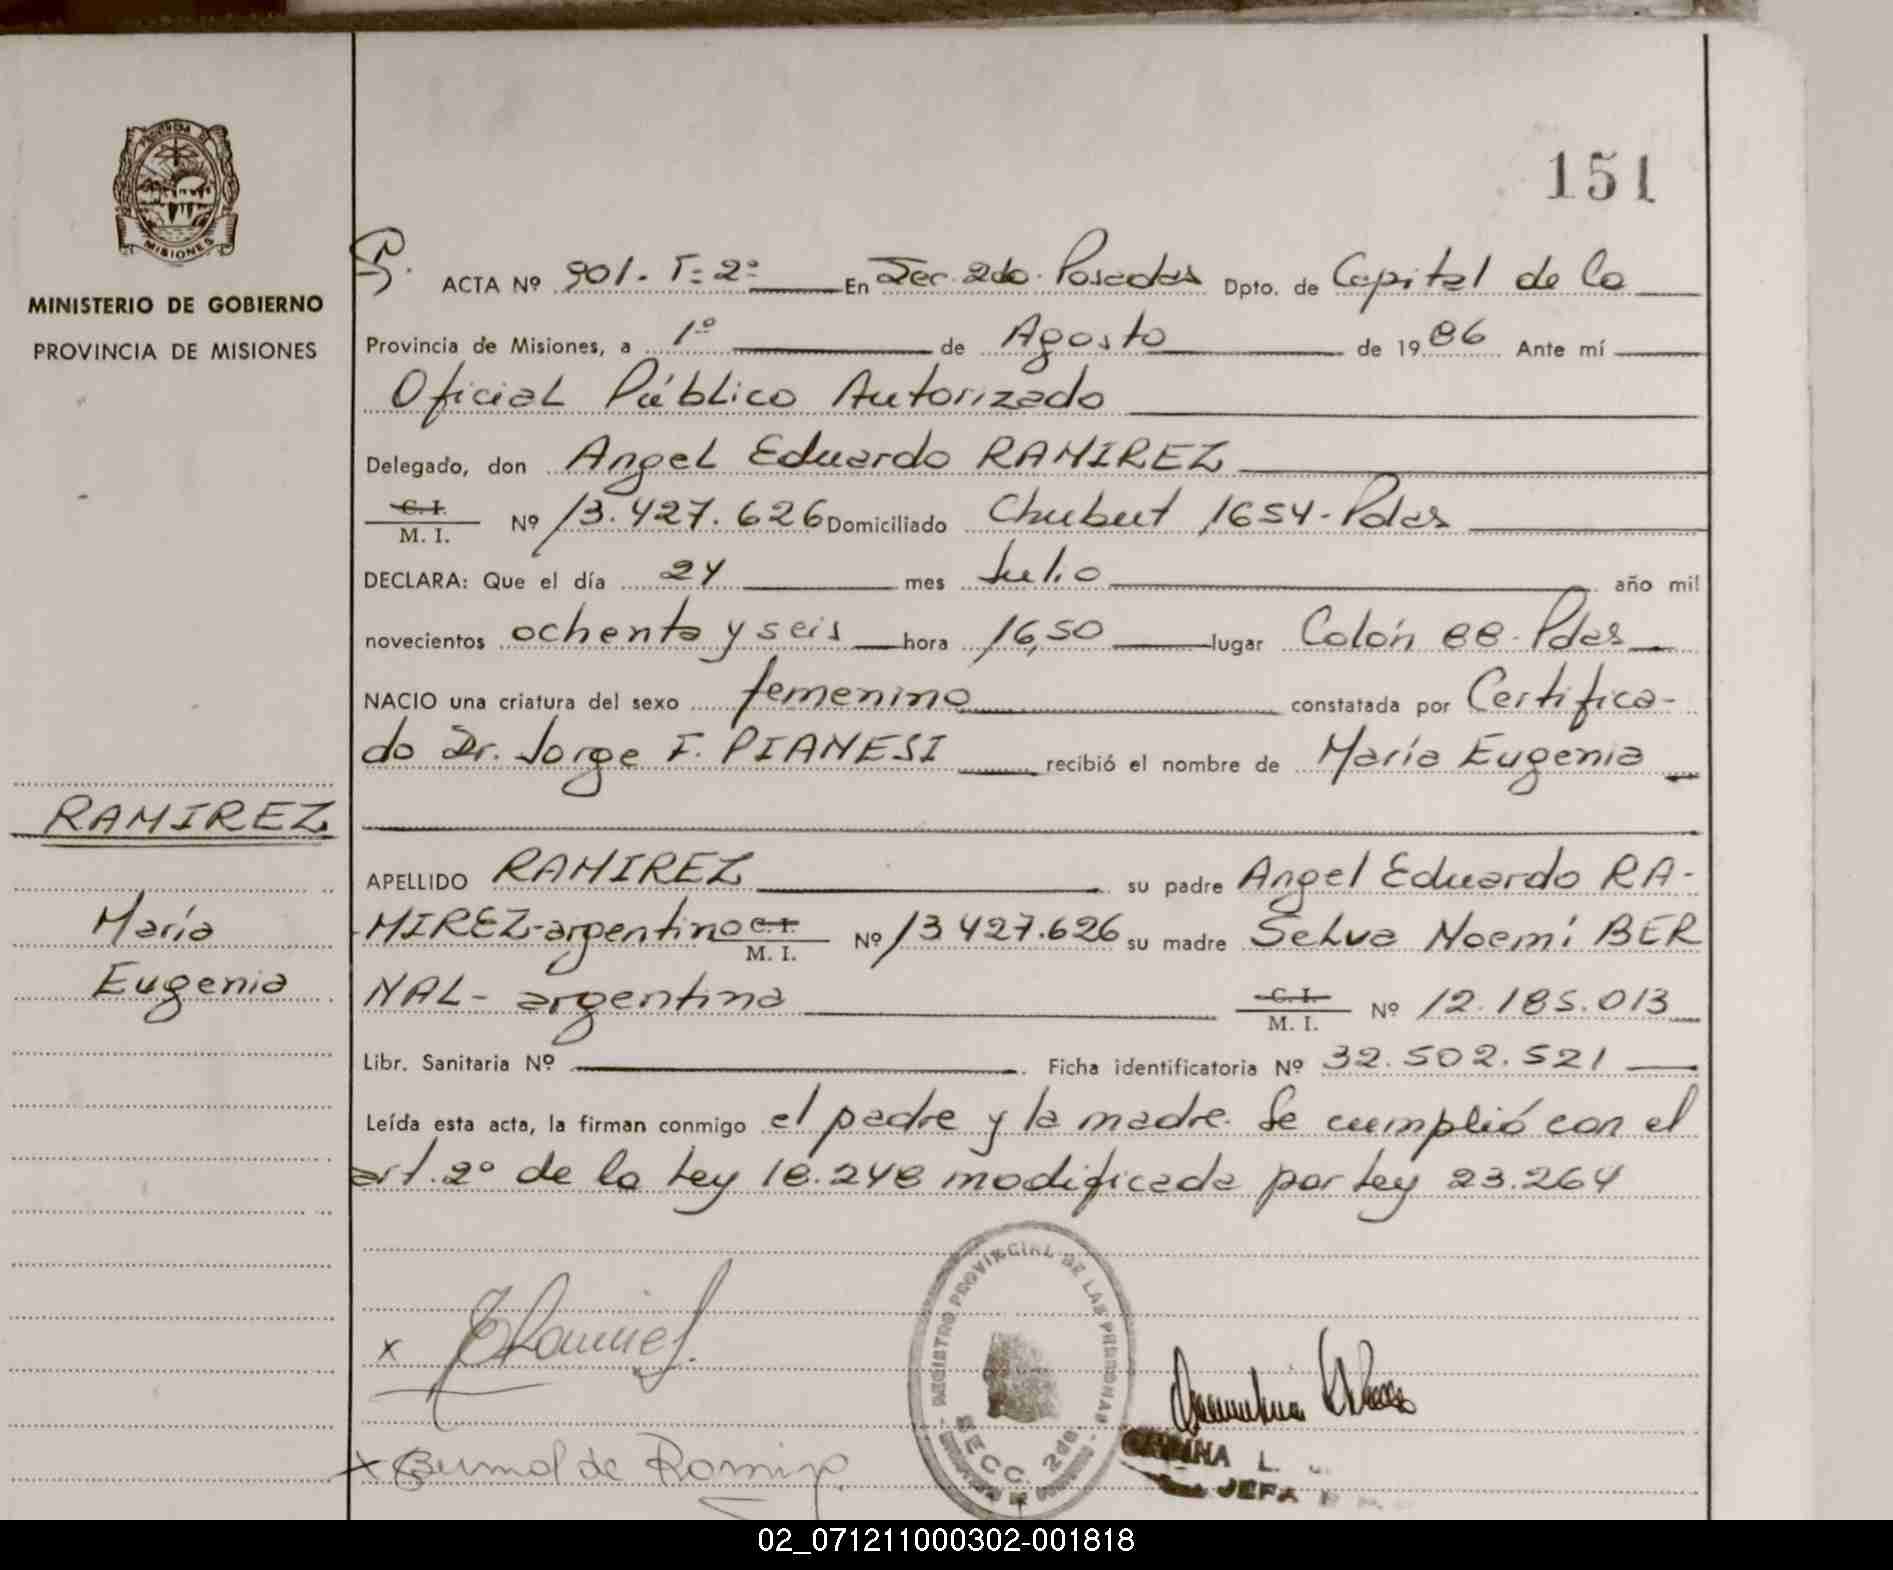 151
PROVINCIA DE
MISIONES
MINISTERIO DE GOBIERNO
PROVINCIA DE MISIONES
RAMIREZ
María
Eugenia
ACTA Nº 901. T= 2º En Sec. 2do. Posadas Dpto. de Capital de la
Provincia de Misiones, a 1º de Agosto de 1986 Ante mí
Oficial Público Autorizado
Delegado, don Angel Eduardo RAMIREZ
C. I.
M. I. Nº 13.427.626 Domiciliado Chubut 1654-Pdas
DECLARA: Que el día 24 mes Julio año mil
novecientos ochenta y seis hora 16,50 lugar Colón 88-Pdas
NACIO una criatura del sexo femenino constatada por Certifica-
do Dr. Jorge F. PIANESI recibió el nombre de María Eugenia
APELLIDO RAMIREZ su padre Angel Eduardo RA-
MIREZ-argentino C. I.
M. I. Nº 13427.626 su madre Selva Noemí BER
NAL- argentina C. I.
M. I. Nº 12.185.013
Libr. Sanitaria Nº Ficha identificatoria Nº 32.502.521
Leída esta acta, la firman conmigo el padre y la madre. Se cumplió con el
art. 2º de la Ley 18.248 modificada por Ley 23.264
REGISTRO PROVINCIAL DE LAS PERSONAS
SECC. 2da
x
x Bernal de Ramirez
L.
JEFA
02_071211000302-001818